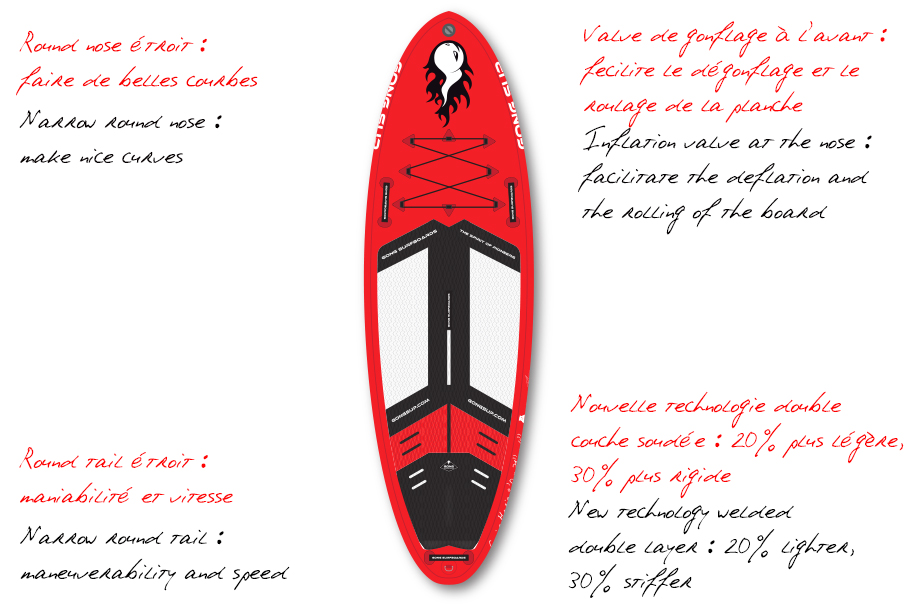 Round nose étroit :
faire de belles courbes
Narrow round nose :
make nice curves
Valve de gonflage à l'avant :
fecilite le dégonflage et le
roulage de la planche
Inflation valve at the nose :
facilitate the deflation and
the rolling of the board
GONG SUP
GONG SUP
GONG SURFBOARDS
THE SPIRIT OF PIONEERS
GONGSUP.COM
GONGSUP.COM
GONG SURFBOARDS
Round tail étroit :
maniabilité et vitesse
Narrow round tail :
maneuverability and speed
Nouvelle technologie double
couche soudée : 20% plus légère,
30% plus rigide
New technology welded
double layer : 20% lighter,
30% stiffer